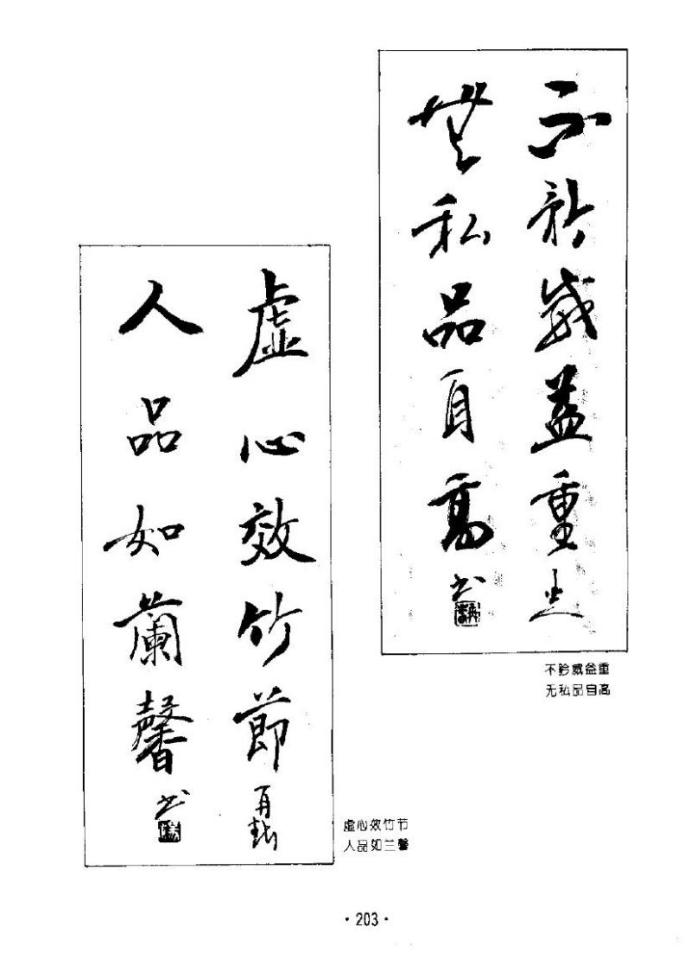 不矜威益重
無私品自高
书
不矜威益重
无私品自高
虛心效竹節
人品如蘭馨
书
虚心效竹节
人品如兰馨
·203·